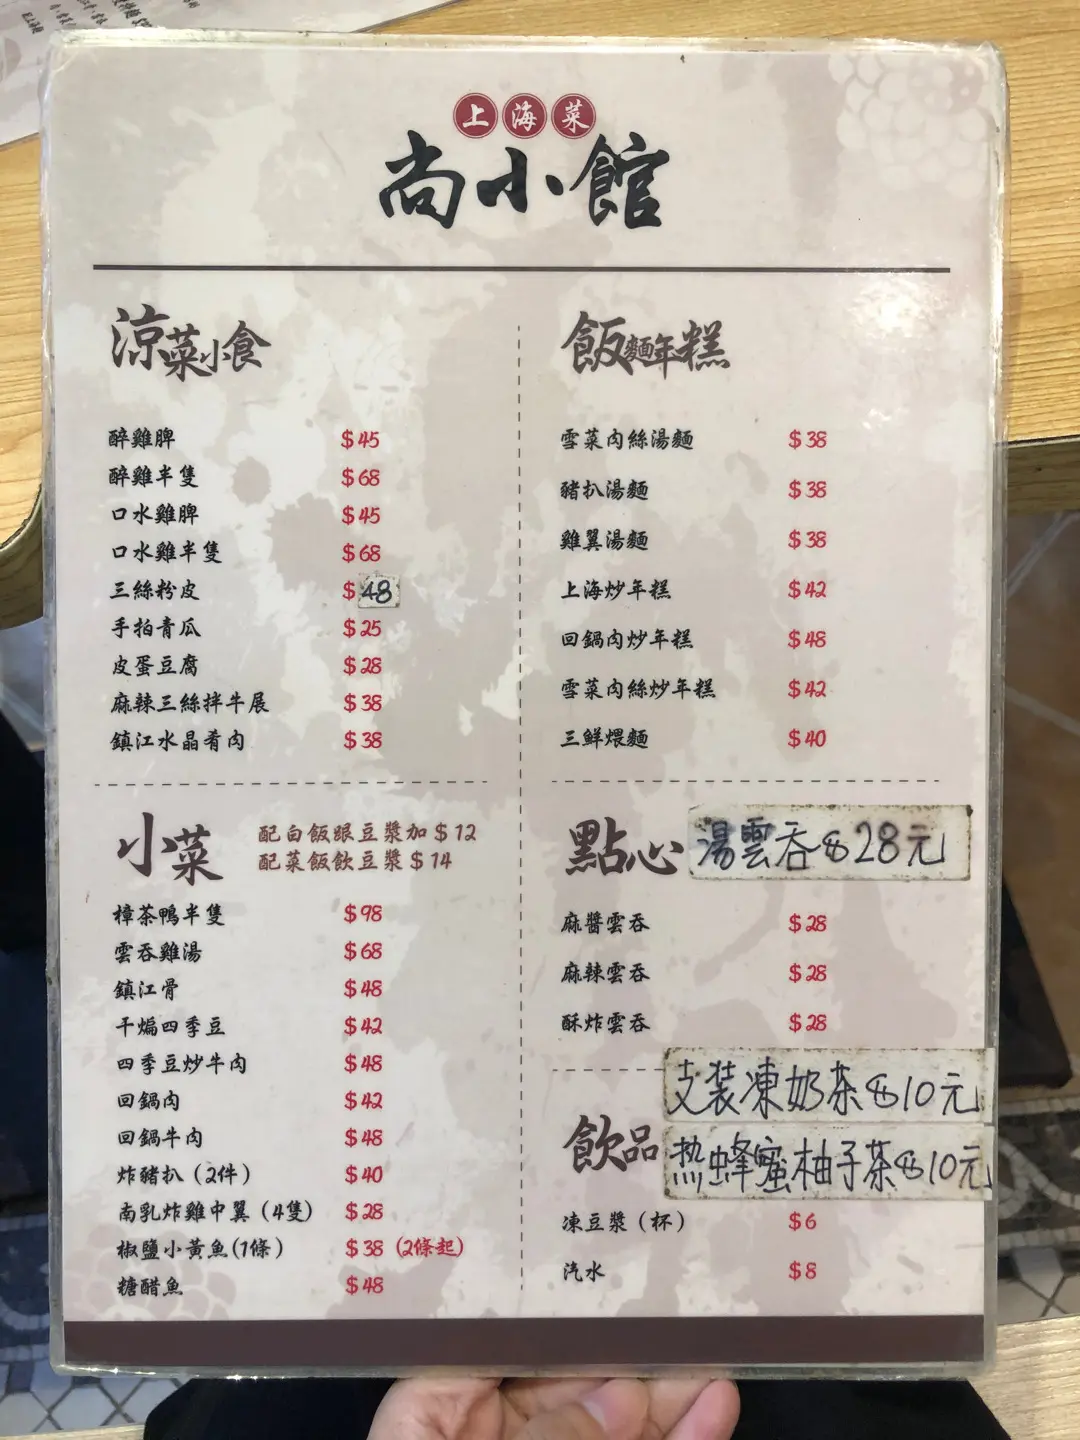 上海菜
尚小館
涼菜小食
醉雞脾 $45
醉雞半隻 $68
口水雞脾 $45
口水雞半隻 $68
三絲粉皮 $48
手拍青瓜 $25
皮蛋豆腐 $28
麻辣三絲拌牛展 $38
鎮江水晶肴肉 $38
小菜
配白飯跟豆漿加$12
配菜飯飲豆漿$14
樟茶鴨半隻 $98
雲吞雞湯 $68
鎮江骨 $48
干煸四季豆 $42
四季豆炒牛肉 $48
回鍋肉 $42
回鍋牛肉 $48
炸豬扒（2件） $40
南乳炸雞中翼（4隻） $28
椒鹽小黃魚(1條） $38 (2條起)
糖醋魚 $48
飯麵年糕
雪菜肉絲湯麵 $38
豬扒湯麵 $38
雞翼湯麵 $38
上海炒年糕 $42
回鍋肉炒年糕 $48
雪菜肉絲炒年糕 $42
三鮮煨麵 $40
點心 湯雲吞$28元
麻醬雲吞 $28
麻辣雲吞 $28
酥炸雲吞 $28
支装凍奶茶$10元
飲品 热蜂蜜柚子茶$10元
凍豆漿（杯） $6
汽水 $8